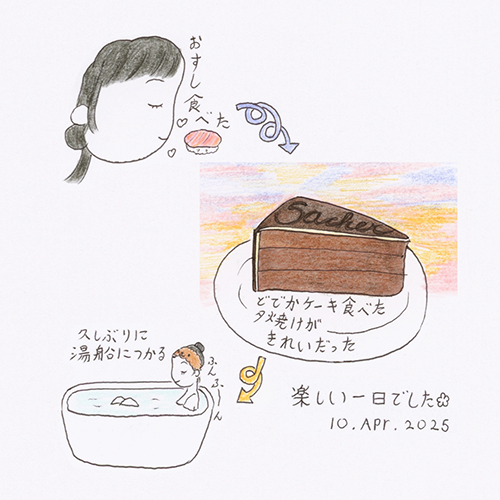 おすし食べた
Sacher
どでかケーキ食べた
夕焼けが
きれいだった
久しぶりに
湯船につかる
ふんふーん
楽しい一日でした
10. Apr. 2025